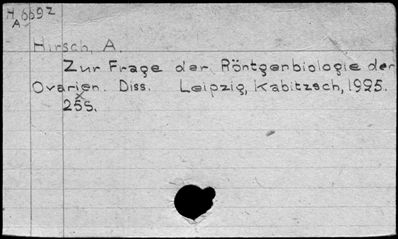 H
A 6692
Hirsch, A.
Zur Frage der Röntgenbiologie der
Ovarien. Diss. Leipzig, Kabitzsch, 1925.
25S.